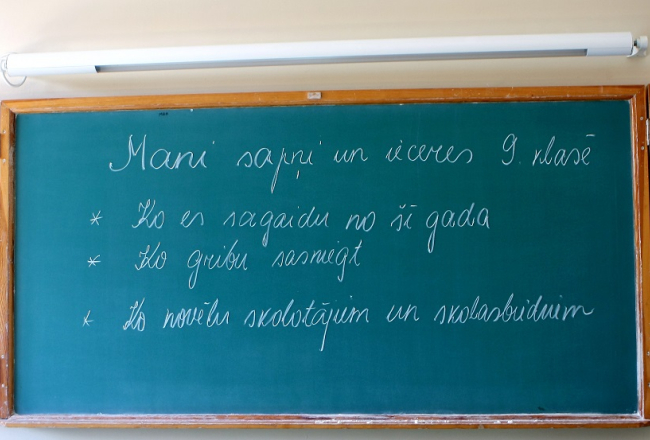 Mani sapņi un ieceres 9. klasē
* Ko es sagaidu no šī gada
* Ko gribu sasniegt
* Ko novēlu skolotājiem un skolasbiedriem